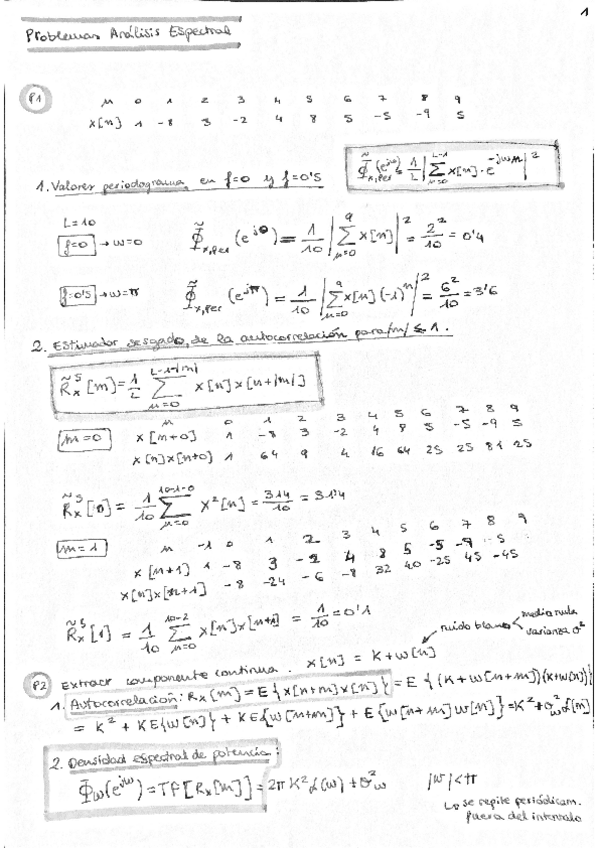 1
Problemas Análisis Espectral
P1
n 0 1 2 3 4 5 6 7 8 9
x[n] 1 -8 3 -2 4 8 5 -5 -9 5
1. Valores periodograma en f=0 y f=0'5
Φ̃x,Per(e^jω) = 1/L |∑_{n=0}^{L-1} x[n]·e^{-jωn}|²
L=10
f=0 → ω=0 Φ̃x,Per(e^j0) = 1/10 |∑_{n=0}^{9} x[n]|² = 2²/10 = 0'4
f=0'5 → ω=π Φ̃x,Per(e^jπ) = 1/10 |∑_{n=0}^{9} x[n](-1)^n|² = 6²/10 = 3'6
2. Estimador sesgado de la autocorrelación para |m| ≤ 1.
R̃x^S[m] = 1/L ∑_{n=0}^{L-1-|m|} x[n]x[n+|m|]
n 0 1 2 3 4 5 6 7 8 9
m=0 x[n+0] 1 -8 3 -2 4 8 5 -5 -9 5
x[n]x[n+0] 1 64 9 4 16 64 25 25 81 25
R̃x^S[0] = 1/10 ∑_{n=0}^{10-1-0} x²[n] = 314/10 = 31'4
m=1 n -1 0 1 2 3 4 5 6 7 8 9
x[n+1] 1 -8 3 -2 4 8 5 -5 -9 5
x[n]x[n+1] -8 -24 -6 -8 32 40 -25 45 -45
R̃x^S[1] = 1/10 ∑_{n=0}^{10-2} x[n]x[n+1] = 1/10 = 0'1
P2 Extraer componente continua: x[n] = K+w[n] ruido blanco media nula
varianza σ²
1. Autocorrelación: Rx[m] = E{x[n+m]x[n]} = E{(K+w[n+m])(K+w[n])}
= K² + KE{w[n]} + KE{w[n+m]} + E{w[n+m]w[n]} = K²+σ²w δ[m]
2. Densidad espectral de potencia:
Φ̃ω(e^jω) = TF[Rx[m]] = 2πK²δ(ω) + σ²w |ω|<π
↳ se repite periódicam.
fuera del intervalo